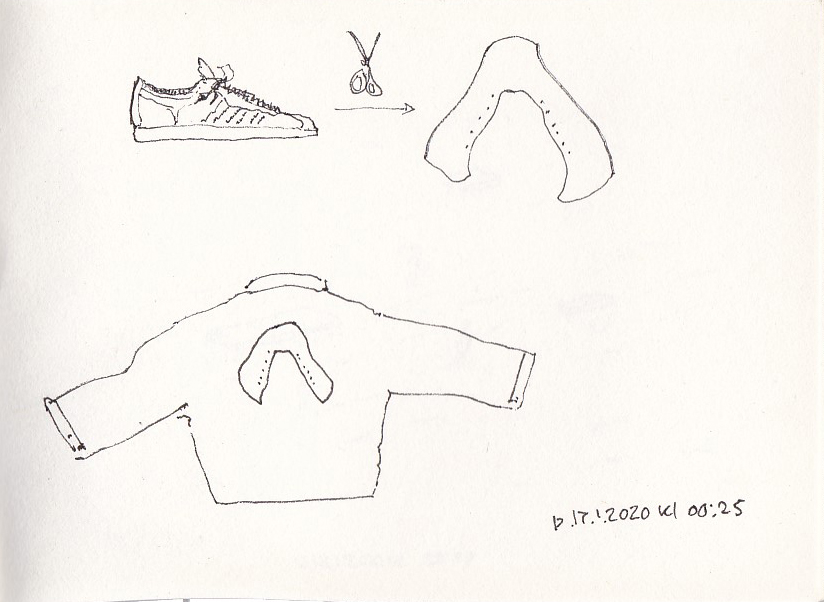 D.17.1.2020 kl 00:25